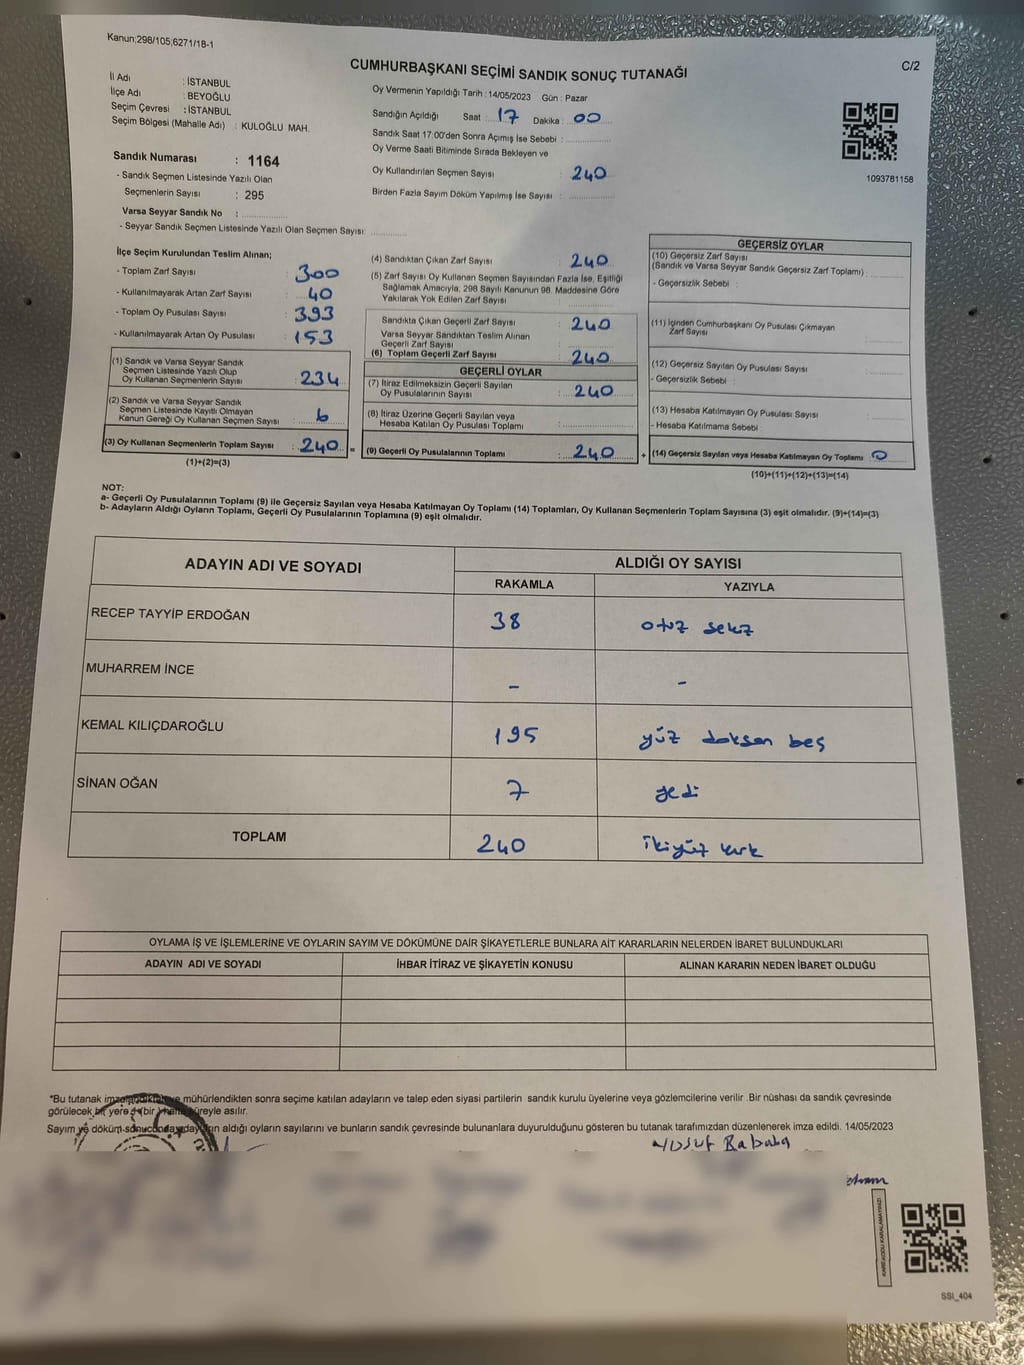 Kanun;298/105;6271/18-1
CUMHURBAŞKANI SEÇİMİ SANDIK SONUÇ TUTANAĞI
C/2
İl Adı : İSTANBUL
İlçe Adı : BEYOĞLU
Seçim Çevresi : İSTANBUL
Seçim Bölgesi (Mahalle Adı) : KULOĞLU MAH.
Sandık Numarası : 1164
- Sandık Seçmen Listesinde Yazılı Olan
Seçmenlerin Sayısı : 295
Varsa Seyyar Sandık No :
- Seyyar Sandık Seçmen Listesinde Yazılı Olan Seçmen Sayısı:
Oy Vermenin Yapıldığı Tarih : 14/05/2023 Gün : Pazar
Sandığın Açıldığı Saat : 17 Dakika : 00
Sandık Saat 17:00'den Sonra Açımış İse Sebebi :
Oy Verme Saati Bitiminde Sırada Bekleyen ve
Oy Kullandırılan Seçmen Sayısı : 240
Birden Fazla Sayım Döküm Yapılmış İse Sayısı :
1093781158
İlçe Seçim Kurulundan Teslim Alınan;
- Toplam Zarf Sayısı : 300
- Kullanılmayarak Artan Zarf Sayısı : 40
- Toplam Oy Pusulası Sayısı : 393
- Kullanılmayarak Artan Oy Pusulası : 153
(1) Sandık ve Varsa Seyyar Sandık
Seçmen Listesinde Yazılı Olup
Oy Kullanan Seçmenlerin Sayısı : 234
(2) Sandık ve Varsa Seyyar Sandık
Seçmen Listesinde Kayıtlı Olmayan
Kanun Gereği Oy Kullanan Seçmen Sayısı : 6
(3) Oy Kullanan Seçmenlerin Toplam Sayısı : 240 =
(1)+(2)=(3)
(4) Sandıktan Çıkan Zarf Sayısı : 240
(5) Zarf Sayısı Oy Kullanan Seçmen Sayısından Fazla İse, Eşitliği
Sağlamak Amacıyla, 298 Sayılı Kanunun 98. Maddesine Göre
Yakılarak Yok Edilen Zarf Sayısı
Sandıkta Çıkan Geçerli Zarf Sayısı : 240
Varsa Seyyar Sandıktan Teslim Alınan
Geçerli Zarf Sayısı
(6) Toplam Geçerli Zarf Sayısı : 240
GEÇERLİ OYLAR
(7) İtiraz Edilmeksizin Geçerli Sayılan
Oy Pusulalarının Sayısı : 240
(8) İtiraz Üzerine Geçerli Sayılan veya
Hesaba Katılan Oy Pusulası Toplamı :
(9) Geçerli Oy Pusulalarının Toplamı : 240 +
GEÇERSİZ OYLAR
(10) Geçersiz Zarf Sayısı
(Sandık ve Varsa Seyyar Sandık Geçersiz Zarf Toplamı) :
- Geçersizlik Sebebi :
(11) İçinden Cumhurbaşkanı Oy Pusulası Çıkmayan
Zarf Sayısı
(12) Geçersiz Sayılan Oy Pusulası Sayısı
- Geçersizlik Sebebi :
(13) Hesaba Katılmayan Oy Pusulası Sayısı
- Hesaba Katılmama Sebebi
(14) Geçersiz Sayılan veya Hesaba Katılmayan Oy Toplamı 0
(10)+(11)+(12)+(13)=(14)
NOT:
a- Geçerli Oy Pusulalarının Toplamı (9) ile Geçersiz Sayılan veya Hesaba Katılmayan Oy Toplamı (14) Toplamları, Oy Kullanan Seçmenlerin Toplam Sayısına (3) eşit olmalıdır. (9)+(14)=(3)
b- Adayların Aldığı Oyların Toplamı, Geçerli Oy Pusulalarının Toplamına (9) eşit olmalıdır.
ADAYIN ADI VE SOYADI ALDIĞI OY SAYISI
RAKAMLA YAZIYLA
RECEP TAYYİP ERDOĞAN 38 otuz sekiz
MUHARREM İNCE - -
KEMAL KILIÇDAROĞLU 195 yüz doksan beş
SİNAN OĞAN 7 yedi
TOPLAM 240 ikiyüz kırk
OYLAMA İŞ VE İŞLEMLERİNE VE OYLARIN SAYIM VE DÖKÜMÜNE DAİR ŞİKAYETLERLE BUNLARA AİT KARARLARIN NELERDEN İBARET BULUNDUKLARI
ADAYIN ADI VE SOYADI İHBAR İTİRAZ VE ŞİKAYETİN KONUSU ALINAN KARARIN NEDEN İBARET OLDUĞU
*Bu tutanak mühürlendikten sonra seçime katılan adayların ve talep eden siyasi partilerin sandık kurulu üyelerine veya gözlemcilerine verilir .Bir nüshası da sandık çevresinde
görülecek bir yere (bir) hafta süreyle asılır.
Sayım ve döküm sonucunda adayların aldığı oyların sayılarını ve bunların sandık çevresinde bulunanlara duyurulduğunu gösteren bu tutanak tarafımızdan düzenlenerek imza edildi. 14/05/2023
Yusuf Babada
KAREKODU KARALAMAYINIZ!
SSI_404